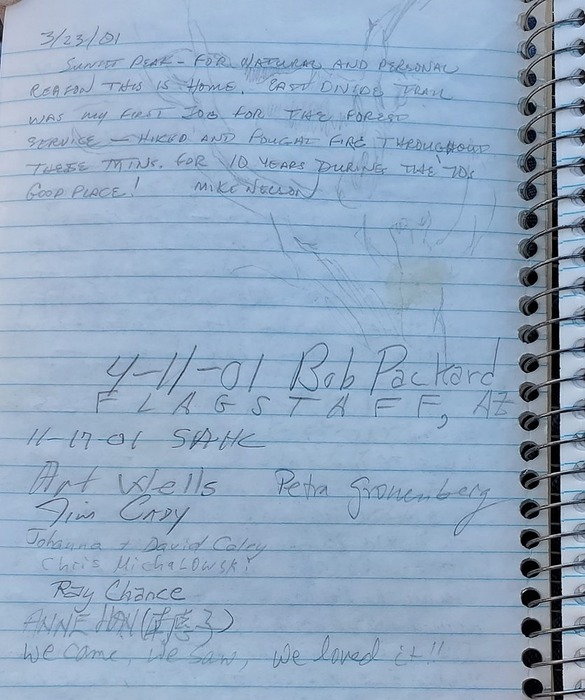 3/23/01
SUNSET PEAK - FOR NATURAL AND PERSONAL
REASON THIS IS HOME. EAST DIVIDE TRAIL
WAS MY FIRST JOB FOR THE FOREST
SERVICE - HIKED AND FOUGHT FIRE THROUGHOUT
THESE MTNS. FOR 10 YEARS DURING THE '70s
GOOD PLACE! MIKE NELSON
4-11-01 Bob Packard
FLAGSTAFF, AZ
11-17-01 SAHC
Art Wells Petra Gronenberg
Jim CADY
Johanna + David Coley
Chris MichaLOWSKi
Ray Chance
ANNE HAN
We came, we saw, we loved it!!